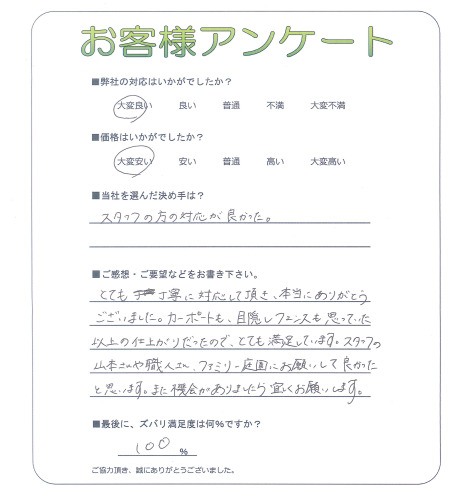 お客様アンケート
■弊社の対応はいかがでしたか？
大変良い 良い 普通 不満 大変不満
■価格はいかがでしたか？
大変安い 安い 普通 高い 大変高い
■当社を選んだ決め手は？
スタッフの方の対応が良かった。
■ご感想・ご要望などをお書き下さい。
とても 丁寧に対応して頂き、本当にありがとう
ございました。カーポートも、目隠しフェンスも思っていた
以上の仕上がりだったので、とても満足しています。スタッフの
山本さんや職人さん、ファミリー庭園にお願いして良かった
と思います。また機会がありましたら宜しくお願いします。
■最後に、ズバリ満足度は何％ですか？
100 ％
ご協力頂き、誠にありがとうございました。